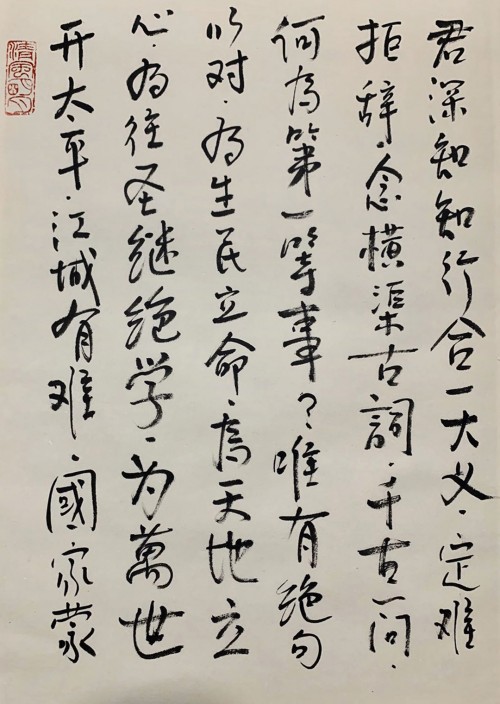 君深知知行合一大义、定难
拒辞。念横渠古詞、千古一问、
何为第一等事？唯有绝句
以对、为生民立命、為天地立
心、为往圣继绝学、为萬世
开太平、江城有难、國家蒙
清風